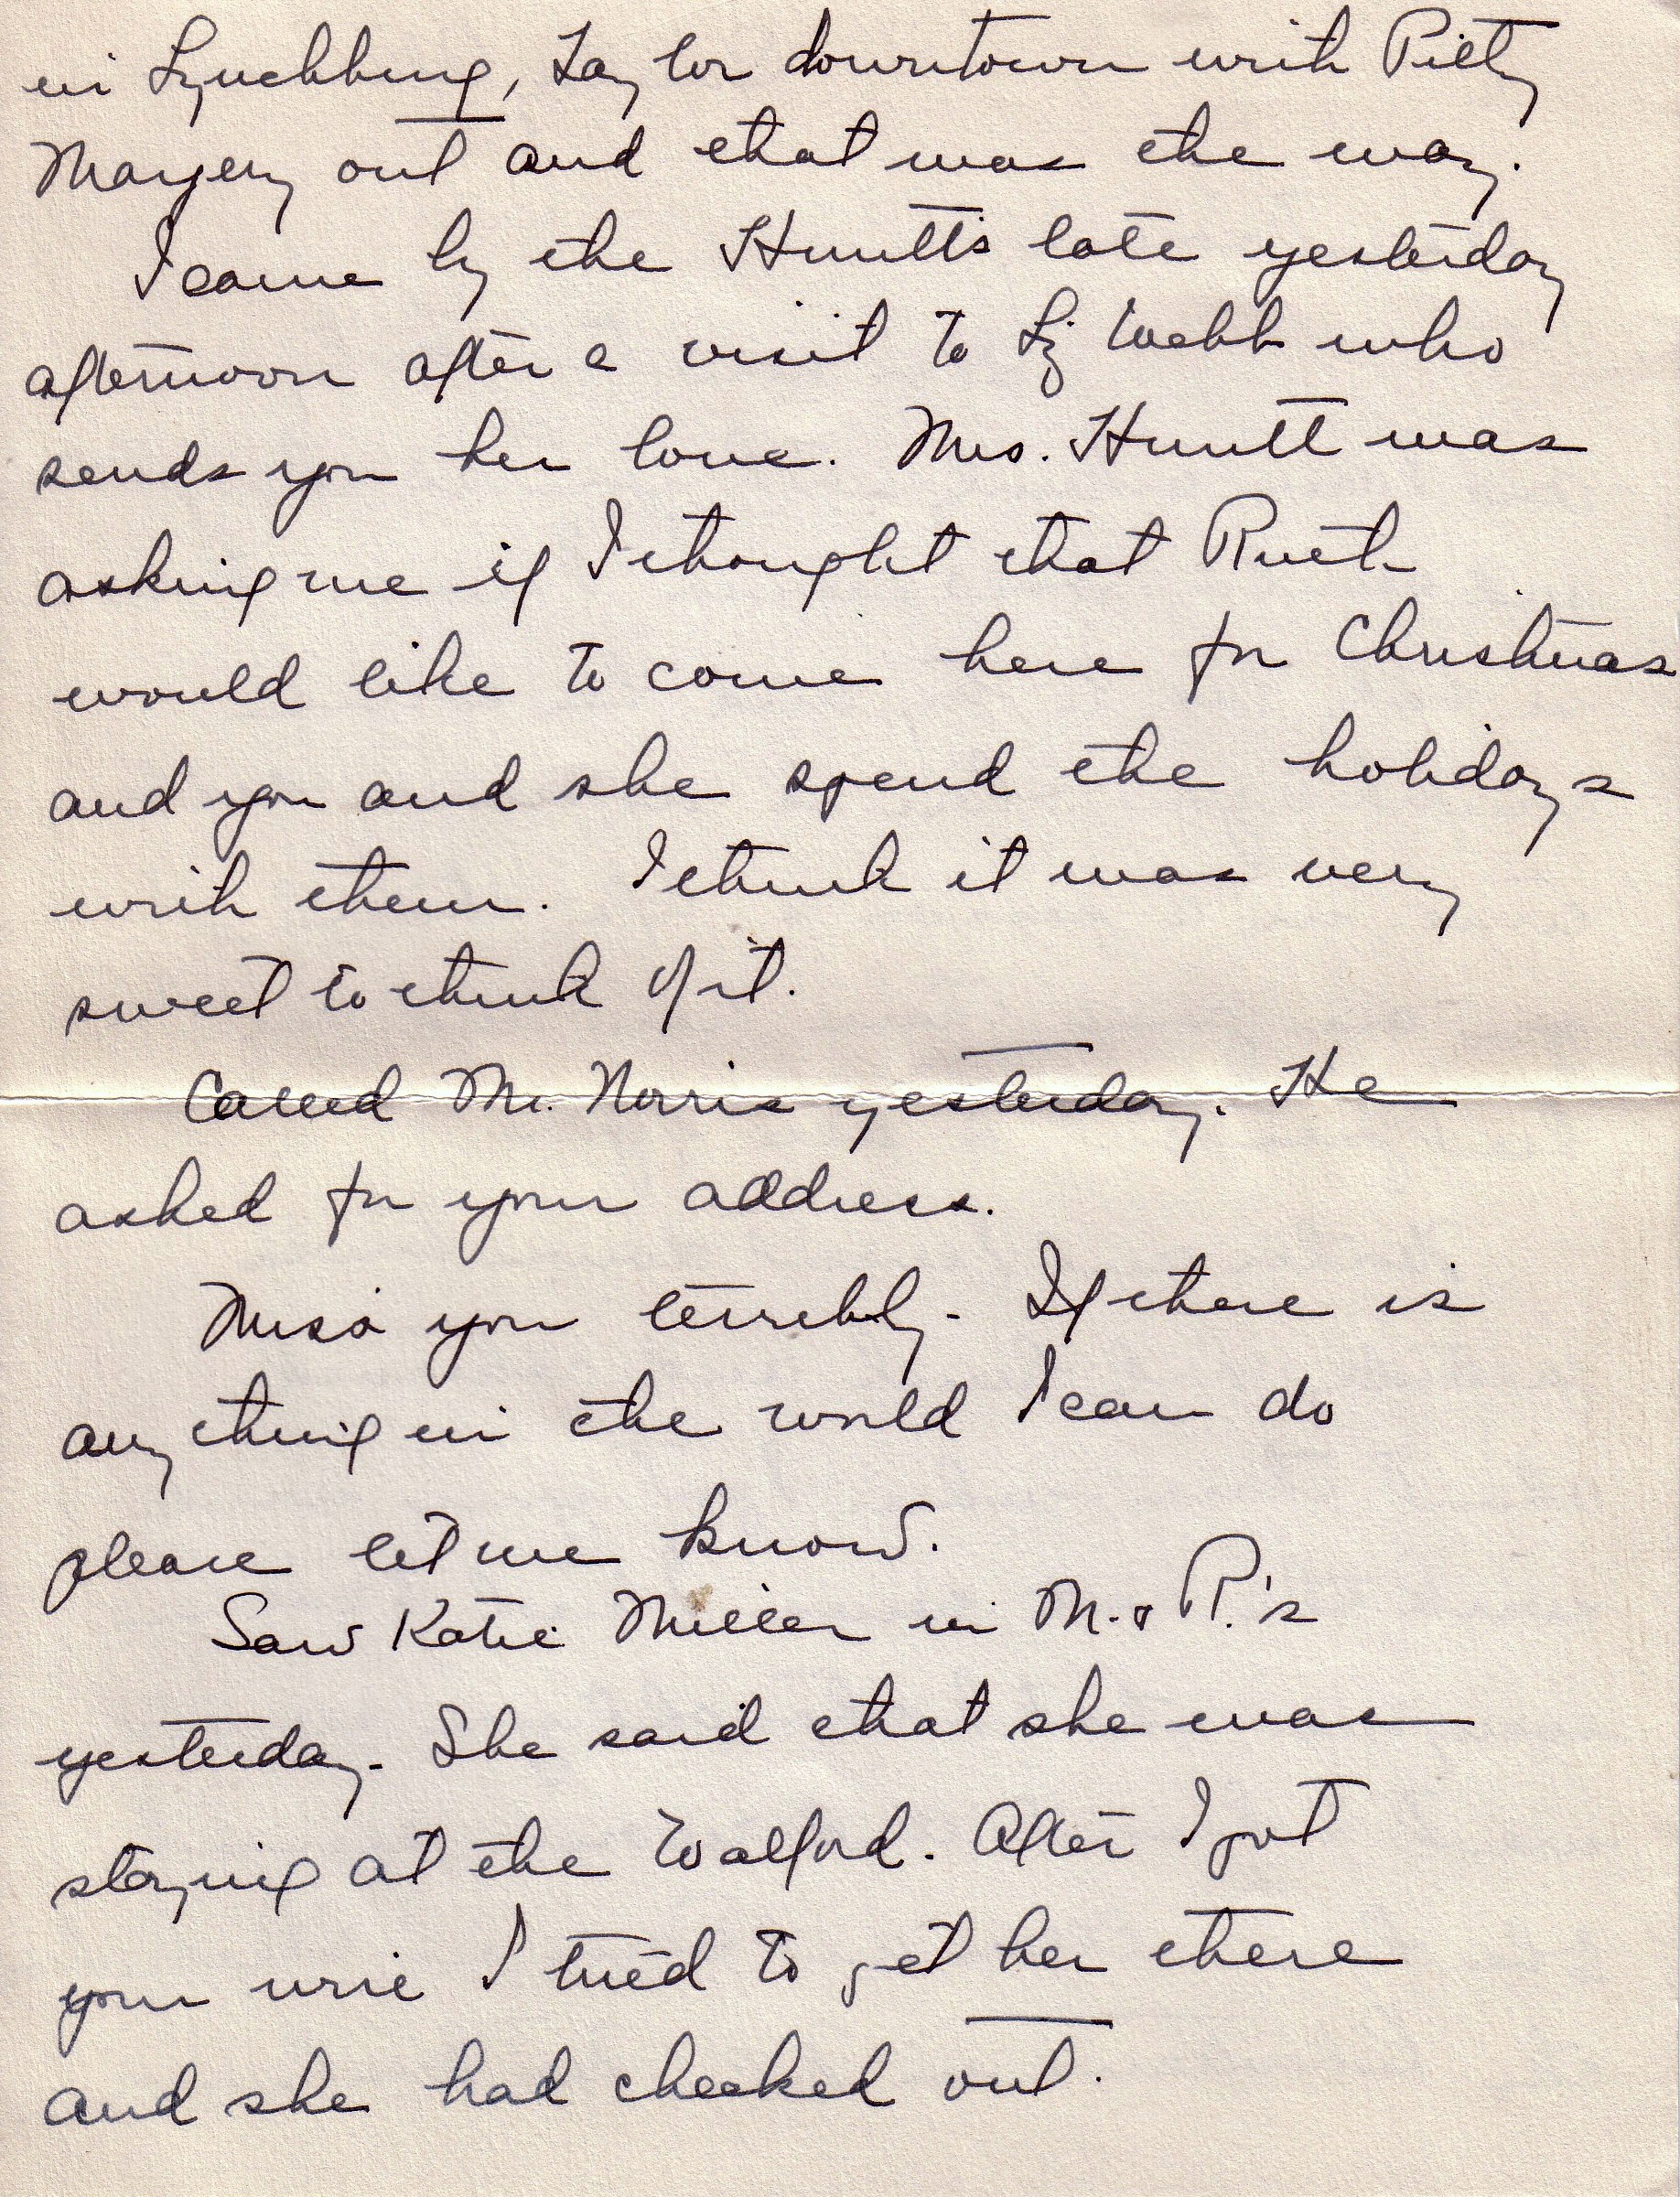 in Lynchburg, Taylor downtown with Pitty
Margery out and that was the way.
I came by the Huntt's late yesterday
afternoon after a visit to Liz Webb who
sends you her love. Mrs. Huntt was
asking me if I thought that Ruth
would like to come here for Christmas
and you and she spend the holidays
with them. I think it was very
sweet to think of it.
Called Mr. Norris yesterday. He
asked for your address.
Miss you terribly - If there is
anything in the world I can do
please let me know.
Saw Katie Miller in M. & R.'s
yesterday - She said that she was
staying at the Walford. After I got
your wire I tried to get her there
and she had checked out.